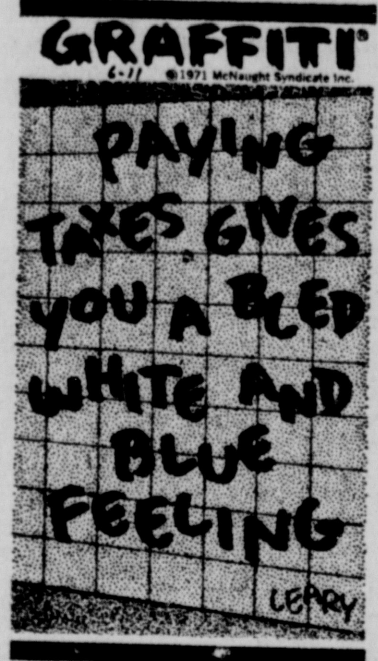 GRAFFITI®
6-11 ©1971 McNaught Syndicate Inc.
PAYING
TAXES GIVES
YOU A BLED
WHITE AND
BLUE
FEELING
LEARY